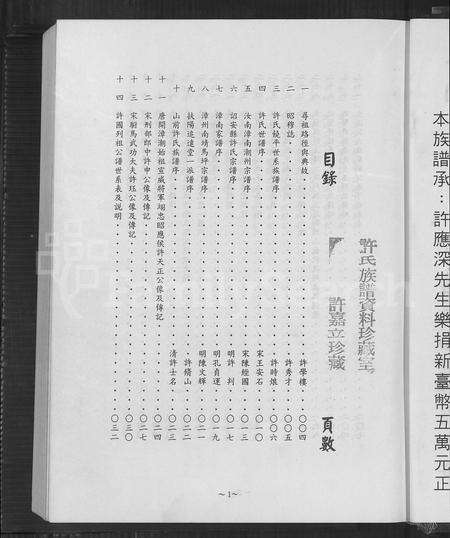 本族譜承：許應深先生樂捐新臺幣五萬元正
許氏族譜資料珍藏室
許嘉立珍藏
目錄 頁數
一 尋祖路徑與典故 許學樓 〇〇四
二 昭穆誌 許秀才 〇〇五
三 許氏饒平世系族譜序 許時烺 〇〇六
四 許氏世譜序 宋王安石 〇一〇
五 汝南漳南潮州宗譜序 宋陳經國 〇一五
六 詔安縣許氏宗譜序 明許判 〇一七
七 漳南家譜序 明孔貞運 〇一九
八 漳州南靖馬坪宗譜序 明陳文輝 〇二一
九 扶陽追遠堂一派譜序 許蹐山 〇二二
十 山前許氏族譜序 清許士名 〇二三
十一 唐開漳潮始祖宣威將軍翊忠昭應侯許天正公像及傳記 〇二四
十二 宋刑部郎中許申公像及傳記 〇二七
十三 宋駙馬武功大夫許珏公像及傳記 〇三〇
十四 許國列祖公譜世系表及說明 〇三二
~1~